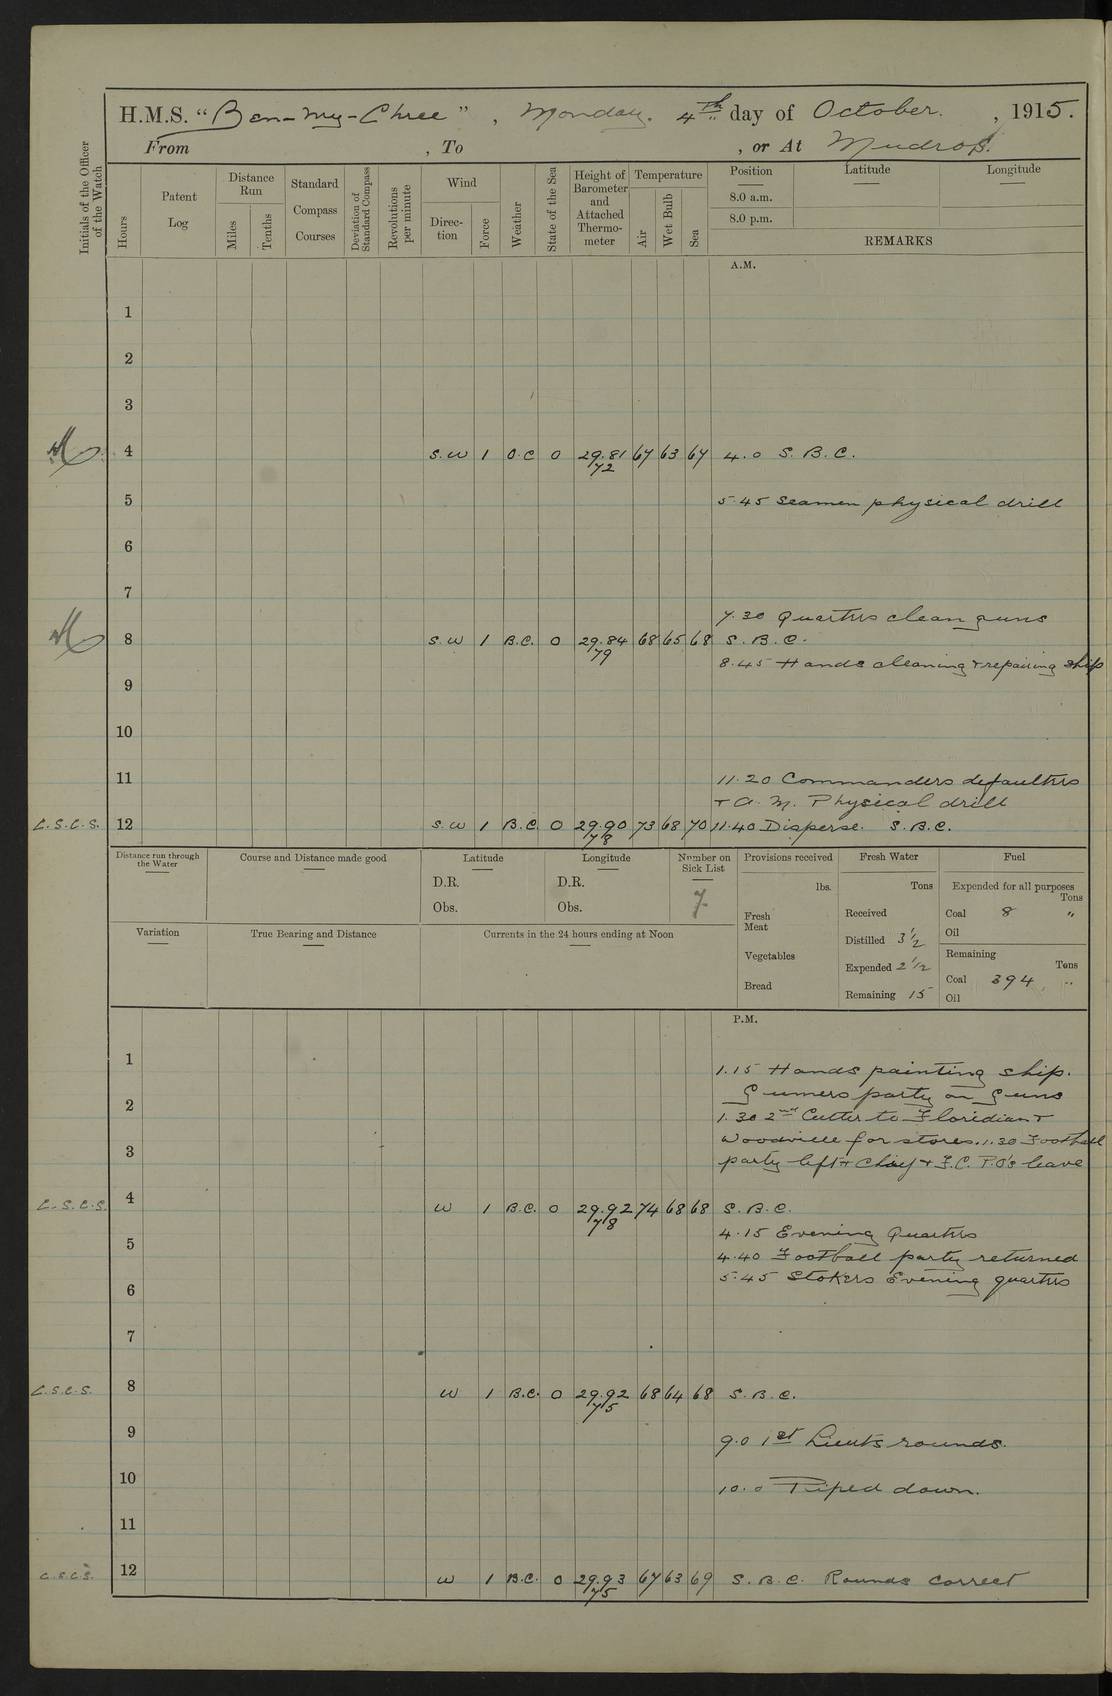 H.M.S. "Ben-my-Chree", Monday. 4th day of October., 1915.
From , To , or At Mudros.
Initials of the Officer of the Watch
Hours
Patent Log
Distance Run
Miles
Tenths
Standard Compass Courses
Deviation of Standard Compass
Revolutions per minute
Wind
Direc-tion
Force
Weather
State of the Sea
Height of Barometer and Attached Thermo-meter
Temperature
Air
Wet Bulb
Sea
Position
Latitude
Longitude
8.0 a.m.
8.0 p.m.
REMARKS
A.M.
1
2
3
4 S.W 1 O.C 0 29.81 67 63 67 4.0 S.B.C.
72
5 5.45 Seamen physical drill
6
7
7.30 Quarters clean guns
8 S.W 1 B.C. 0 29.84 68 65 68 S.B.C.
79
8.45 Hands cleaning & repairing ship
9
10
11 11.20 Commanders defaulters
& A.M. Physical drill
C.S.C.S. 12 S.W 1 B.C. 0 29.90 73 68 70 11.40 Disperse. S.B.C.
78
Distance run through the Water
Course and Distance made good
Latitude
D.R.
Obs.
Longitude
D.R.
Obs.
Number on Sick List
7
Provisions received
lbs.
Fresh Meat
Vegetables
Bread
Fresh Water
Tons
Received
Distilled 3½
Expended 2½
Remaining 15
Fuel
Expended for all purposes
Tons
Coal 8 "
Oil
Remaining
Tons
Coal 394 "
Oil
Variation
True Bearing and Distance
Currents in the 24 hours ending at Noon
P.M.
1 1.15 Hands painting ship.
Gunners party on Guns
2 1.30 2nd Cutter to Floridian &
Woodville for stores. 1.30 Football
3 party left & Chief & F.C. P.O's leave
C.S.C.S. 4 W 1 B.C. 0 29.92 74 68 68 S.B.C.
78
4.15 Evening Quarters
5 4.40 Football party returned
5.45 Stokers Evening quarters
6
7
C.S.C.S. 8 W 1 B.C. 0 29.92 68 64 68 S.B.C.
75
9 9.0 1st Lieuts rounds.
10 10.0 Piped down.
11
C.S.C.S. 12 W 1 B.C. 0 29.93 67 63 69 S.B.C. Rounds correct
75